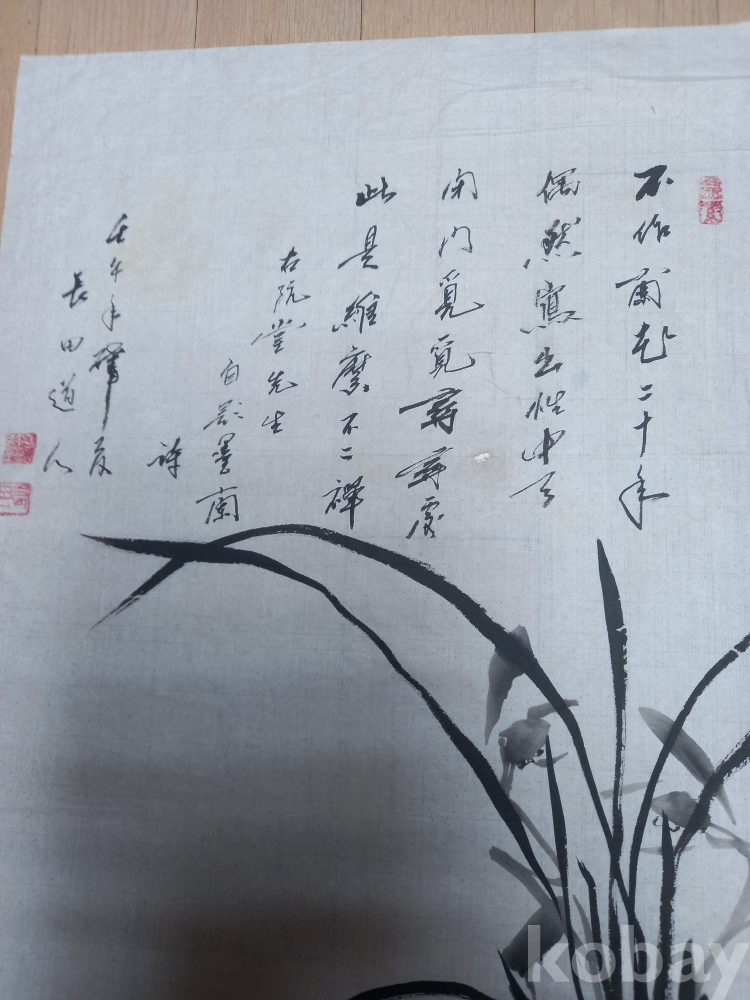 不作蘭花二十年
偶然寫出性中天
閉門覓覓尋尋處
此是維摩不二禪
右阮堂先生
自題墨蘭
詩
壬午年肇夏
長田道人
kobay